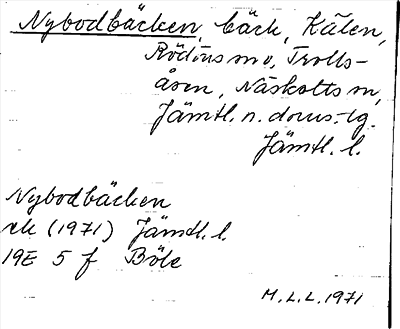 Nybodbäcken, bäck, Kälen,
Rödöns sn o, Trolls-
åsen, Näskotts sn,
Jämtl. n. doms.-lg.
Jämtl. l.
Nybodbäcken
ek (1971) Jämtl. l.
19E 5 f Böle
M. L. L. 1971